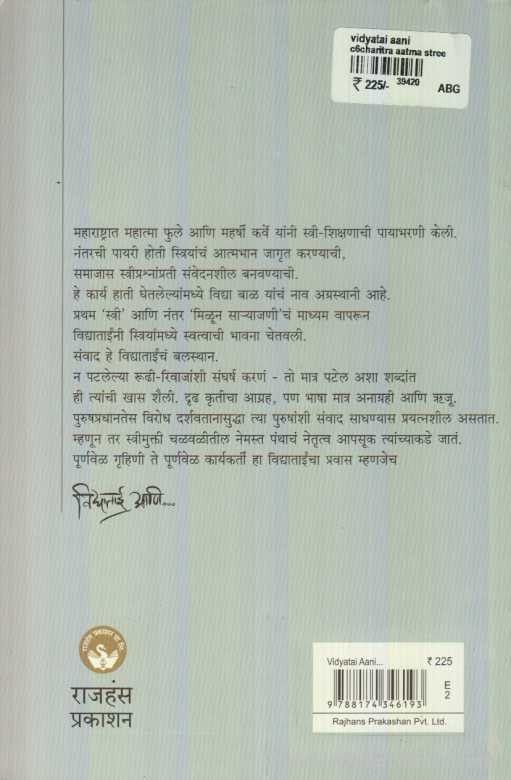 vidyatai aani
c6charitra aatma stree
₹ 225/- 39420 ABG
महाराष्ट्रात महात्मा फुले आणि महर्षी कर्वे यांनी स्त्री-शिक्षणाची पायाभरणी केली.
नंतरची पायरी होती स्त्रियांचं आत्मभान जागृत करण्याची,
समाजास स्त्रीप्रश्नांप्रती संवेदनशील बनवण्याची.
हे कार्य हाती घेतलेल्यांमध्ये विद्या बाळ यांचं नाव अग्रस्थानी आहे.
प्रथम 'स्त्री' आणि नंतर 'मिळून साऱ्याजणी'चं माध्यम वापरून
विद्याताईंनी स्त्रियांमध्ये स्वत्वाची भावना चेतवली.
संवाद हे विद्याताईंचं बलस्थान.
न पटलेल्या रूढी-रिवाजांशी संघर्ष करणं - तो मात्र पटेल अशा शब्दांत
ही त्यांची खास शैली. दृढ कृतीचा आग्रह, पण भाषा मात्र अनाग्रही आणि ऋजू.
पुरुषप्रधानतेस विरोध दर्शवतानासुद्धा त्या पुरुषांशी संवाद साधण्यास प्रयत्नशील असतात.
म्हणून तर स्त्रीमुक्ती चळवळीतील नेमस्त पंथाचं नेतृत्व आपसूक त्यांच्याकडे जातं.
पूर्णवेळ गृहिणी ते पूर्णवेळ कार्यकर्ती हा विद्याताईंचा प्रवास म्हणजेच
विद्याताई आणि...
राजहंस
प्रकाशन
Vidyatai Aani... ₹ 225
E
2
9 788174 346193
Rajhans Prakashan Pvt. Ltd.